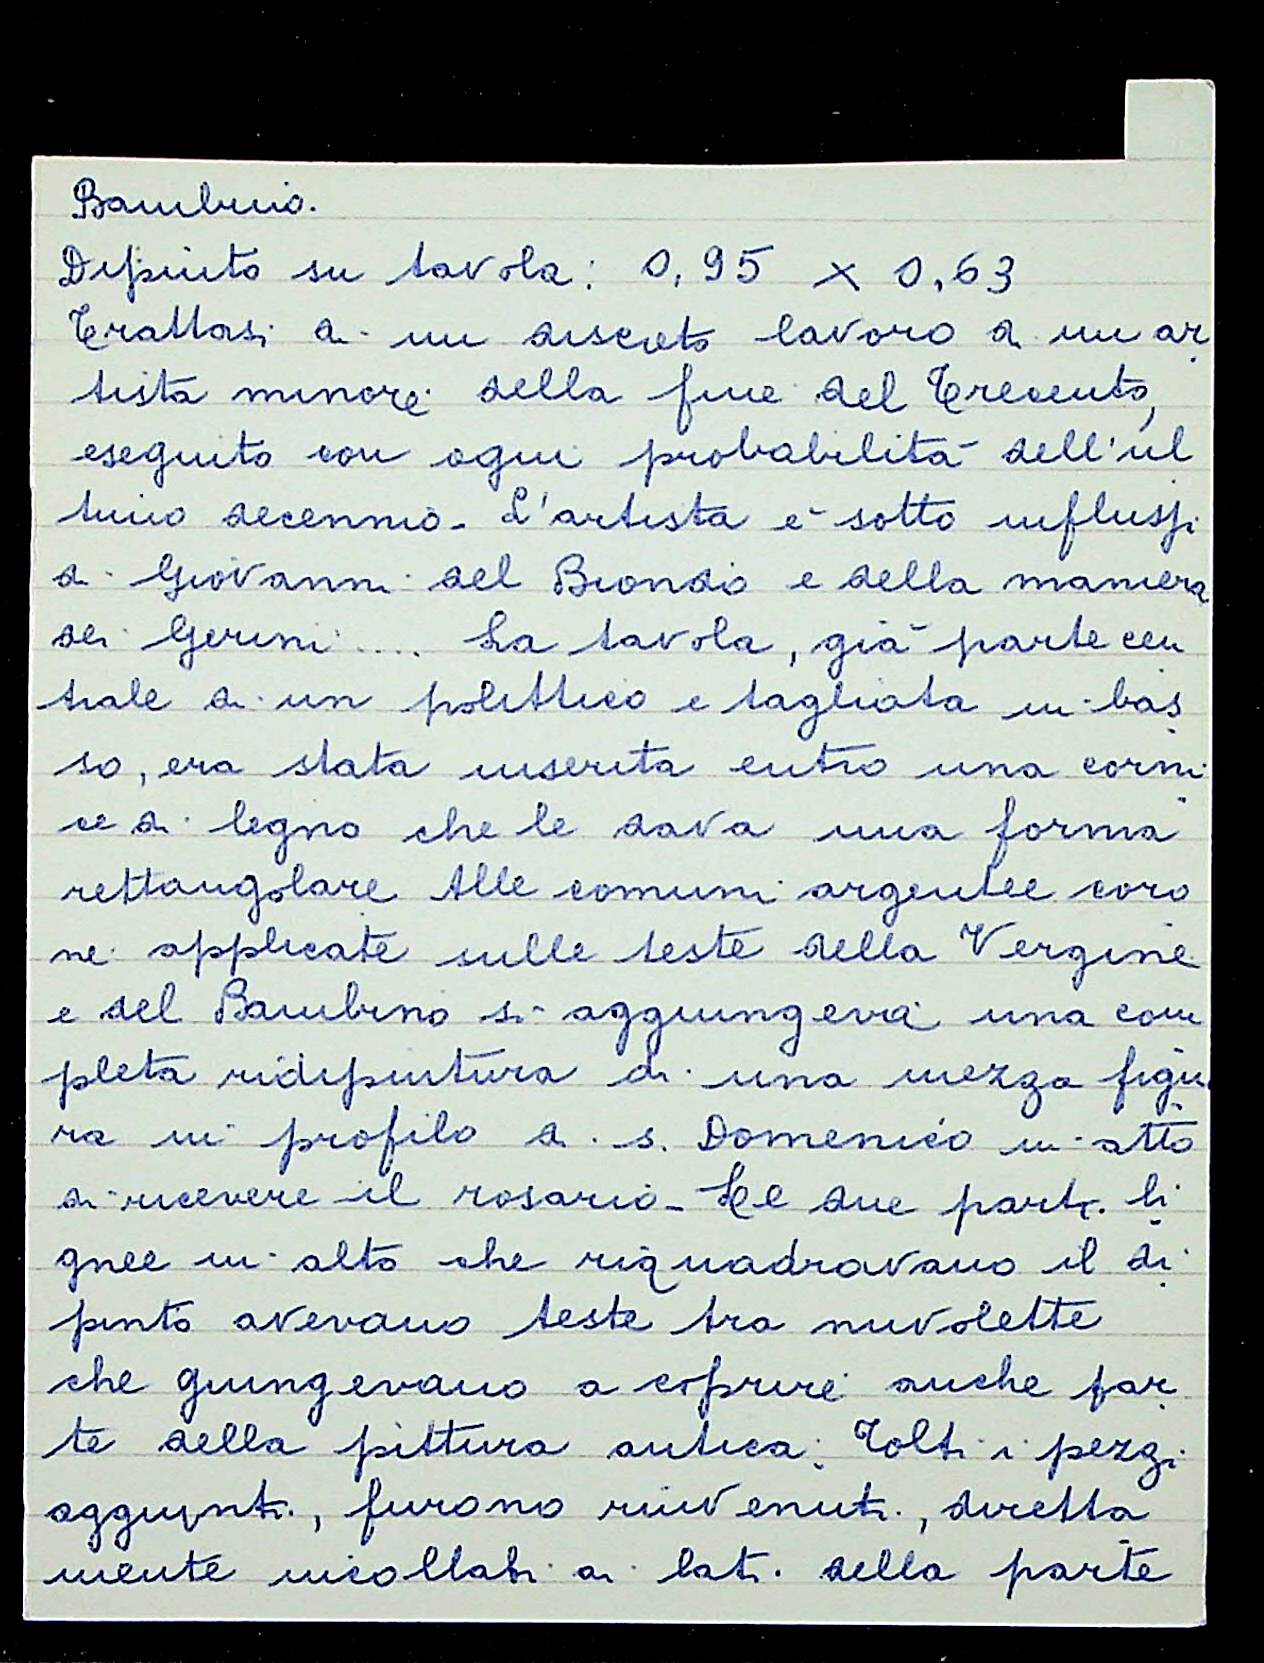 Bambino.
Dipinto su tavola: 0,95 x 0,63
Trattasi di un discreto lavoro di un ar
tista minore della fine del Trecento,
eseguito con ogni probabilità dell'ul
timo decennio - L'artista è sotto influssi
di Giovanni del Biondo e della maniera
dei Gerini .... La tavola, già parte cen
trale di un polittico e tagliata in bas
so, era stata inserita entro una corni
ce di legno che le dava una forma
rettangolare Alle comuni argentee coro
ne applicate sulle teste della Vergine
e del Bambino si aggiungeva una com
pleta ridipintura di una mezza figu
ra in profilo di s. Domenico in atto
di ricevere il rosario - Le due parti li
gnee in alto che riquadravano il di
pinto avevano teste tra nuvolette
che giungevano a coprire anche par
te della pittura antica. Tolti i pezzi
aggiunti, furono rinvenuti, diretta
mente incollati ai lati della parte